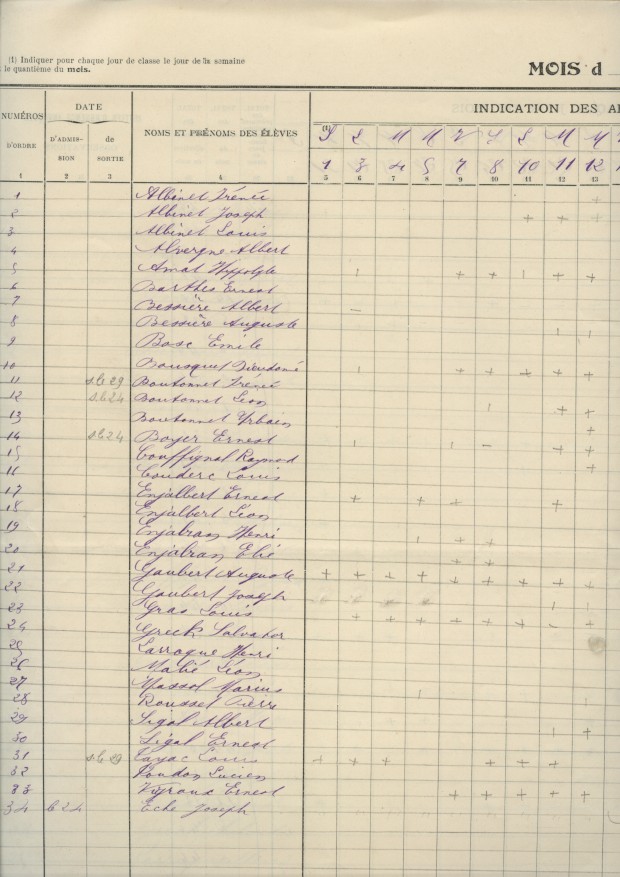 (1) Indiquer pour chaque jour de classe le jour de la semaine
le quantième du mois.
MOIS d
NUMÉROS D'ORDRE DATE NOMS ET PRÉNOMS DES ÉLÈVES INDICATION DES A
D'ADMISSION de SORTIE (1) S L M M V S L M M
1 3 4 5 7 8 10 11 12
1 2 3 4 5 6 7 8 9 10 11 12 13
1 Albinet Irénée +
2 Albinet Joseph + + +
3 Albinet Louis
4 Alvergne Albert
5 Amat Hyppolyte | + + | + +
6 Barthes Ernest
7 Bessière Albert —
8 Bessière Auguste | |
9 Bosc Emile
10 Bousquet Dieudonné | + + + + +
11 s. le 29 Boutonnet Irénée
12 s. le 24 Boutonnet Léon | + +
13 Boutonnet Urbain +
14 s. le 24 Boyer Ernest | | – + +
15 Couffignal Raymond +
16 Couderc Louis
17 Enjalbert Ernest + + – +
18 Enjalbert Léon
19 Enjalran Henri | + +
20 Enjalran Elie + +
21 Gaubert Auguste + + + + + + + + +
22 Gaubert Joseph |
23 Gras Louis + + + + + + – +
24 Greck Salvador
25 Larroque Henri
26 Malié Léon
27 Massol Marius |
28 Rousset Pierre |
29 Sigal Albert
30 Sigal Ernest | +
31 s. le 29 Cayac Louis + + + + + +
32 Loudon Lucien
33 Vayroux Ernest + + + + +
34 le 24 Eche Joseph